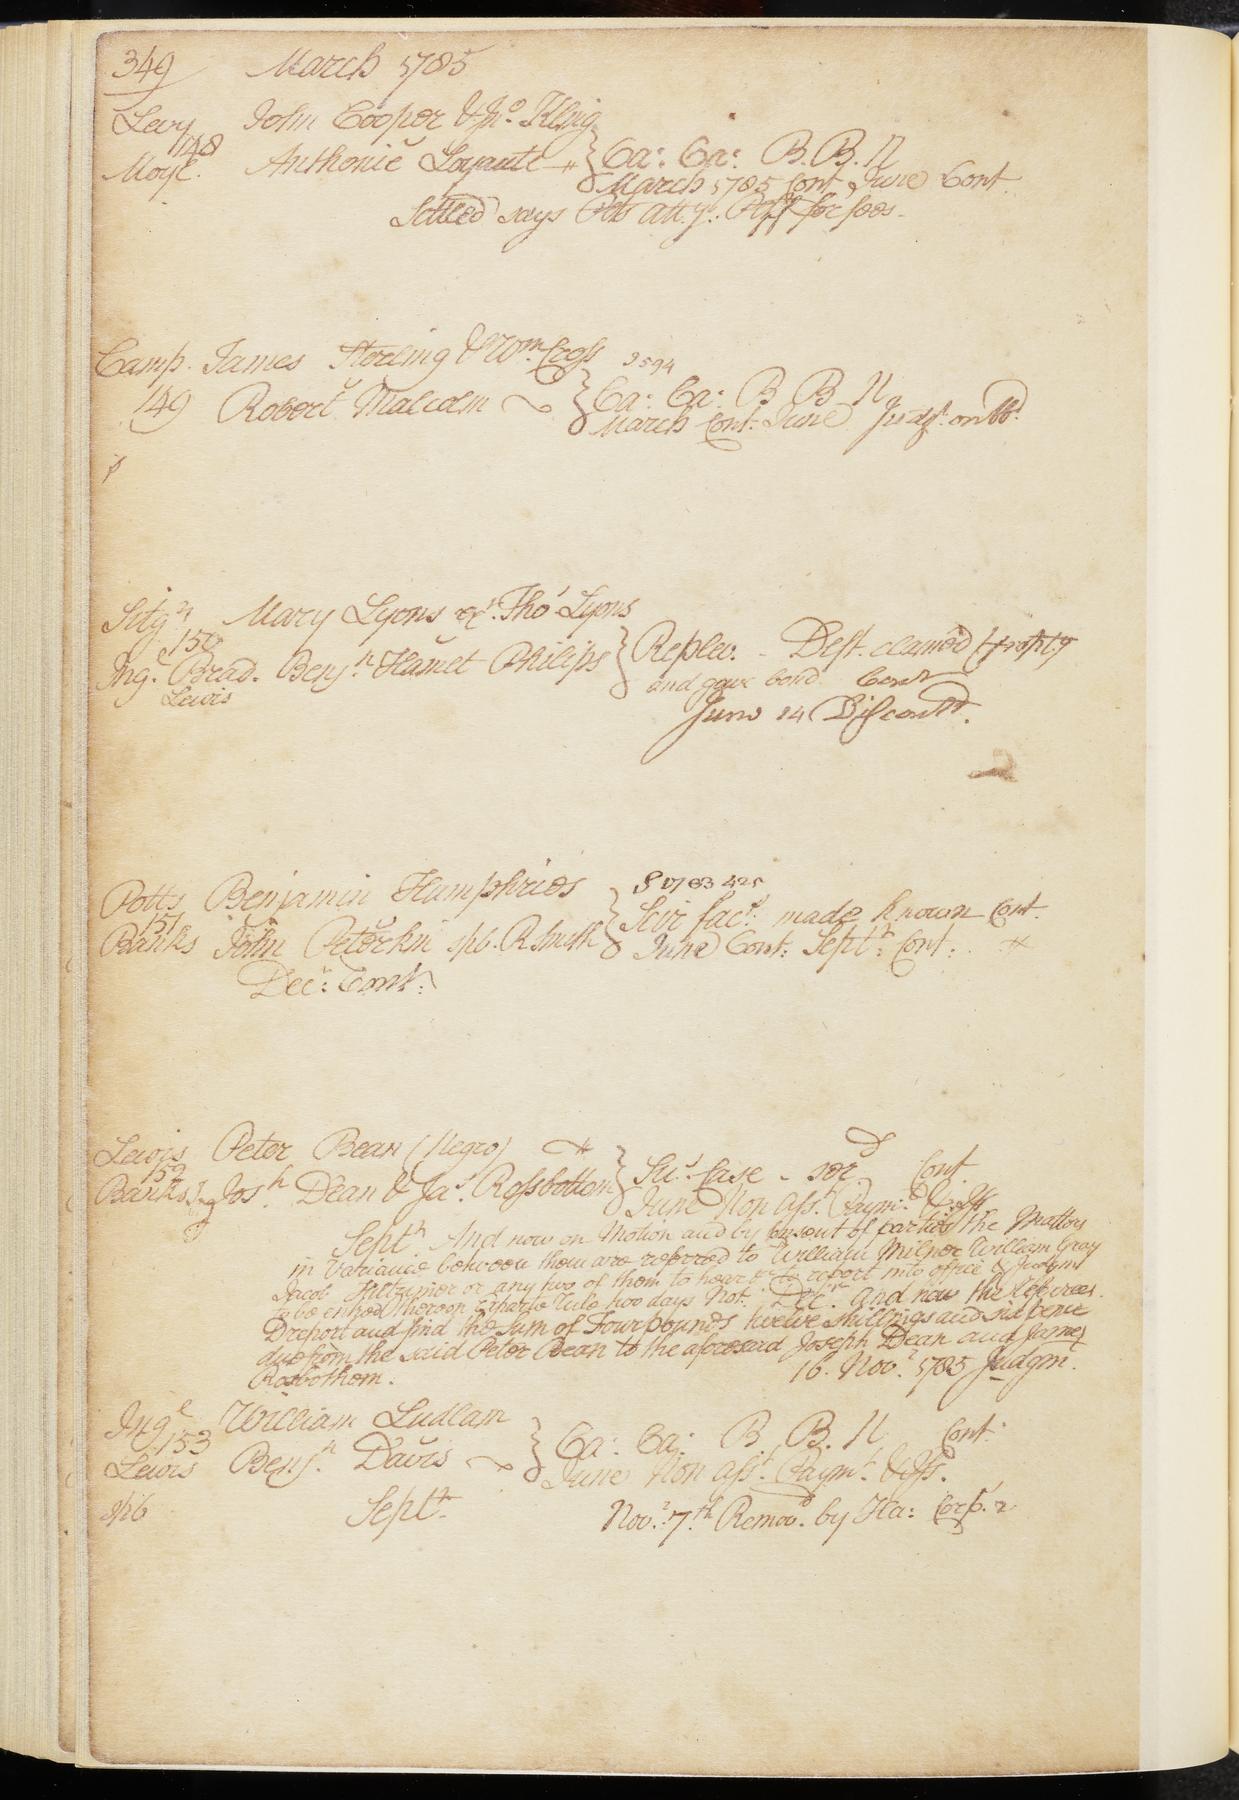 349 March 1785
Levy John Cooper & Jno. Kling
148
Moyl. Anthonie } Ca: Ca: B. B. N
March 1785 Cont. June Cont
Settled says Plts atty. Plff for fees.
Camp. James Sterling & Wm. Cross 3594
149 Robert Malcolm } Ca: Ca: B B N
March Cont. June Judgt. on
Sitgn Mary Lyons Tho Lyons
150
Ing. Brad. Benjn Hamet Philips } Replev. - Deft. clamed Property
Lewis and gave bond Cont
June 14 Discontd.
Potts Benjamin Humphries S 1783 425
151
Banks John Peterkin spb. R Smith } Scir facs: made known Cont.
June Cont: Septr: Cont:
Decr: Cont:
Lewis Peter Bean (Negro)
152
Banks Ing Josh. Dean & Jas. Rossbottom } Sus. Case - Cont
June Non Ass. Paymt. & Iss
Septr. And now on Motion and by Consent of parties the Matters
in Variance between them are referred to William Milnor William Gray
Jacob or any two of them to hear & to report into office & Judgmt
to be entred thereon Exparte Rule two days Not: Decr. and now the Referees
report and find the Sum of Four pounds twelve shillings and six pence
due from the said Peter Bean to the aforesaid Joseph Dean and James
Rosbothom. 16. Nov. 1785 Judgmt.
Ingl William Ludlam
153
Lewis Benjn. Davis } Ca: Ca: B. B. N Cont:
June Non Asst. Paymt. & Iss.
spb Septr. Novr. 7th Remov. by Ha: Corp.